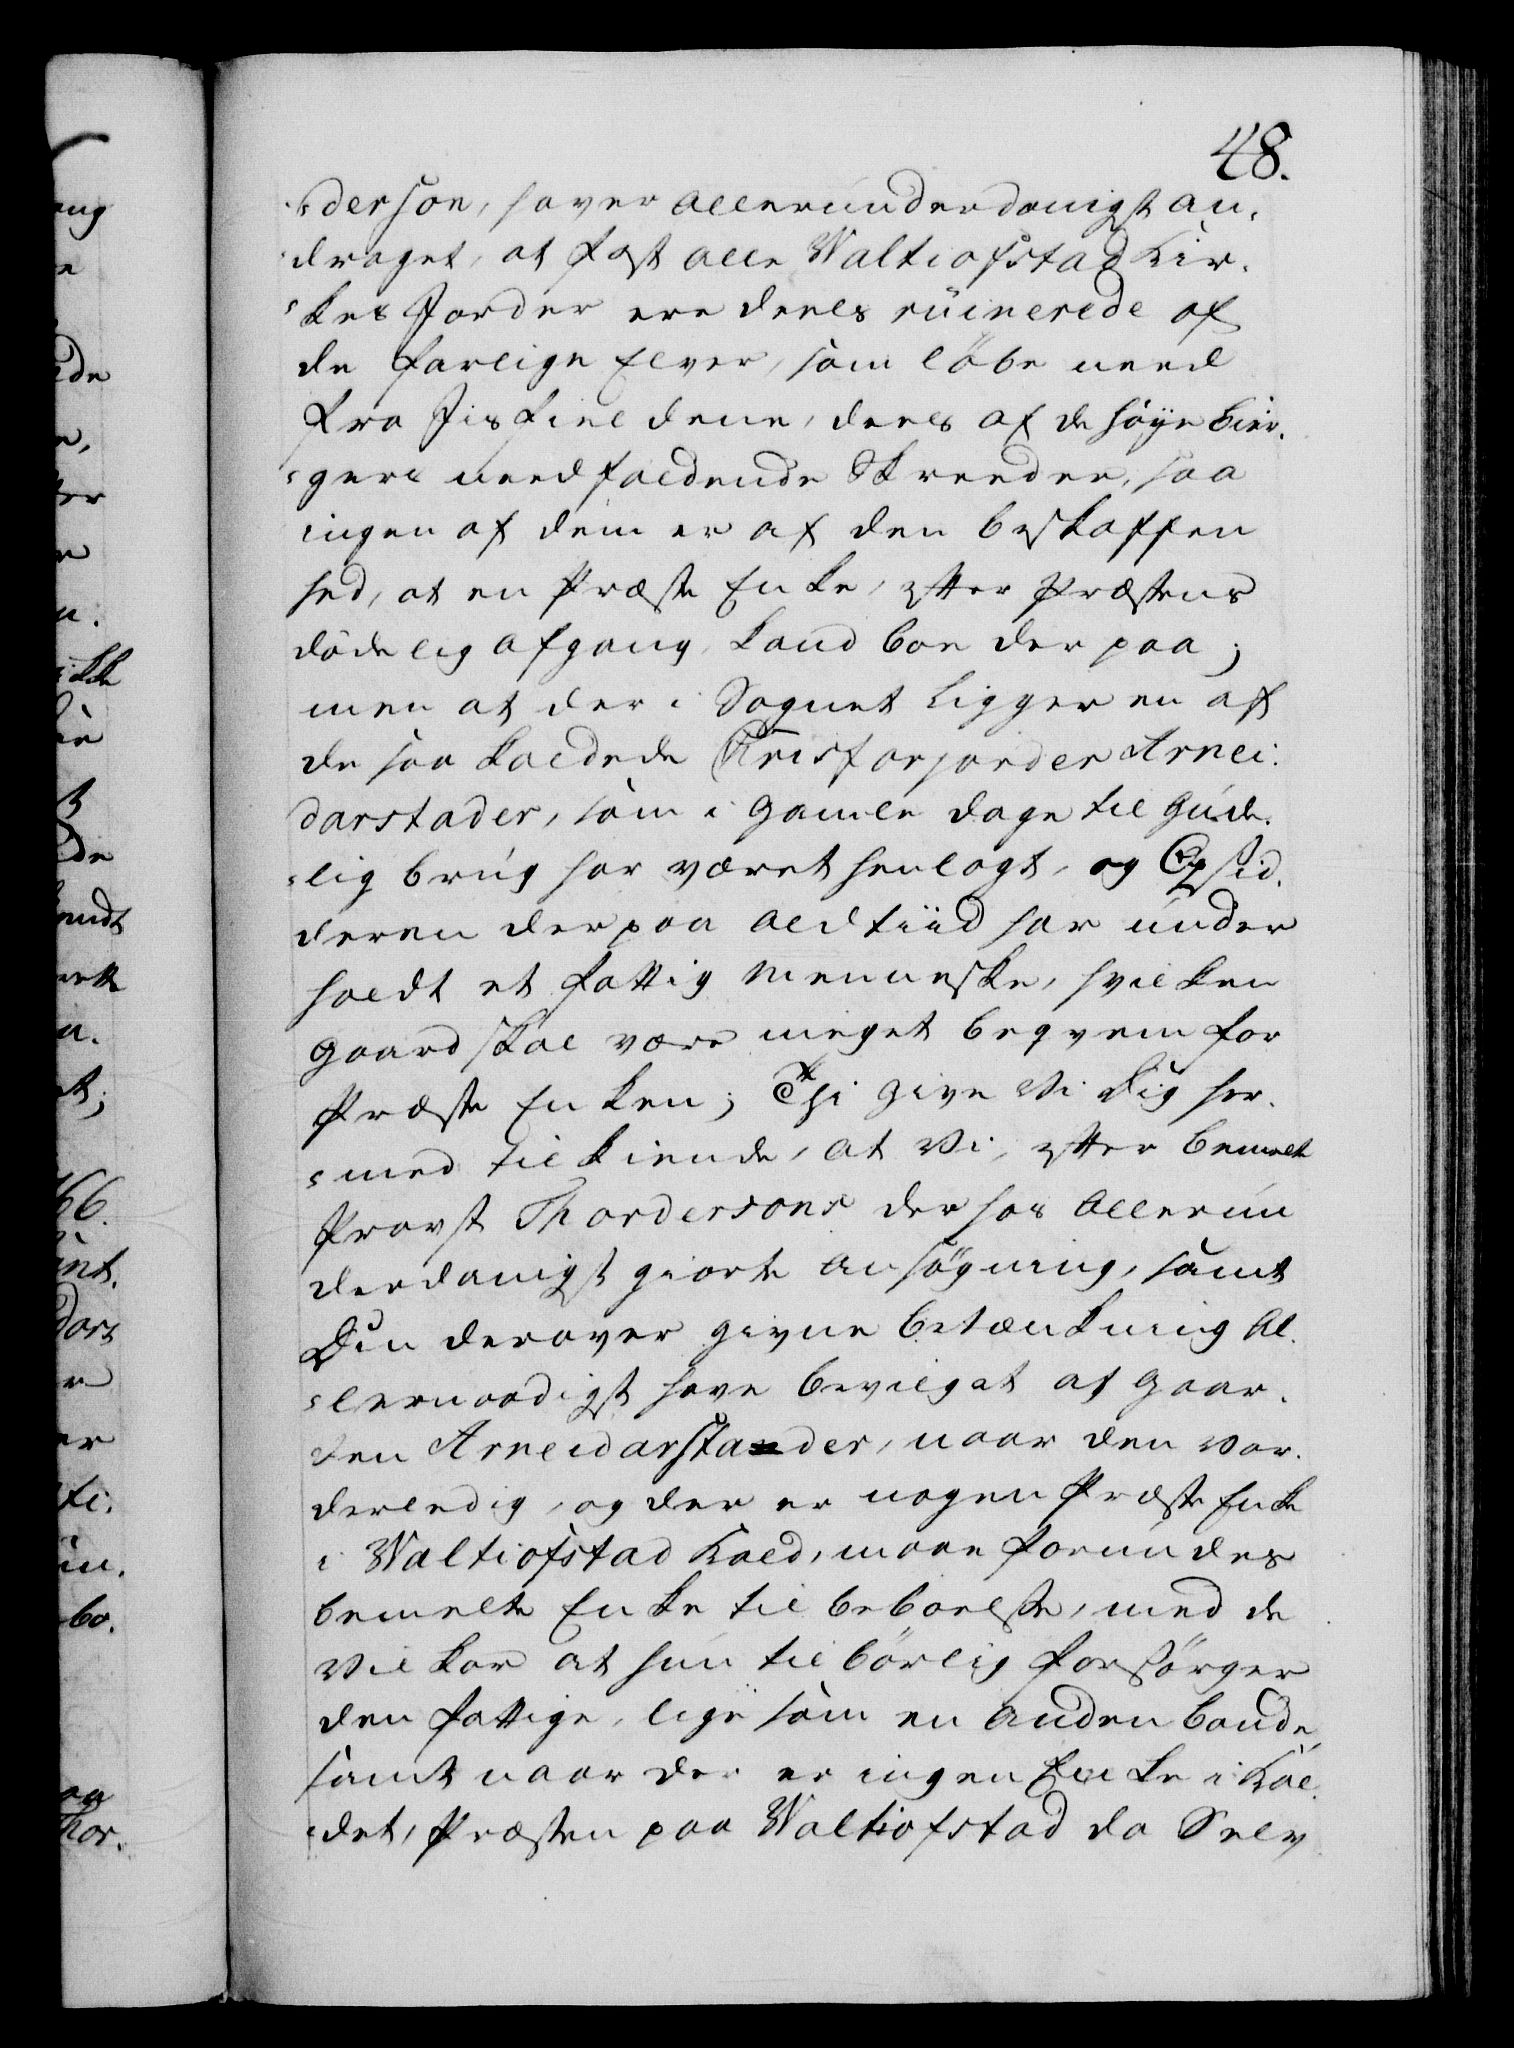 48.
derson, haver allerunderdanigst an¬
draget, at fast alle Waltiofstad Kir¬
kes Jorder ere deels ruinerede af
de farlige Elver, som løbe need
fra Jisfieldene, deels af de høye bier¬
gers needfaldende Skreeder, saa
ingen af dem er af den beskaffen
hed, at en Præste Enke, efter Præstens
dødelig afgang, kand boe derpaa;
men at der i Sognet ligger en af
de saa kaldede Kristfarjorder Arnei¬
darstader, som i gamle dage til gude¬
lig brug har været henlagt, og Opsid¬
deren derpaa altiid har under
holdt et fattig menneske, hvilken
gaard skal være meget beqvem for
Præste Enken; Thi give Vi dig her¬
med tilkiende, at Vi, efter bemelte
Provst Thordersons derhos allerun
derdanigst giorte ansøgning, samt
Din derover givne betænkning al¬
lernaadigst have bevilget at gaar¬
den Arneidarstader, naar den vor¬
der ledig, og der er nogen Præste Enke
i Waltiofstad Kald, maae forundes
bemelte Enke til beboelse, med de
vilkor at hun tilbørlig forsørger
den fattige, lige som en anden bonde,
samt naar der er ingen Enke i Kal¬
det, Præsten paa Waltiofstad da Selv